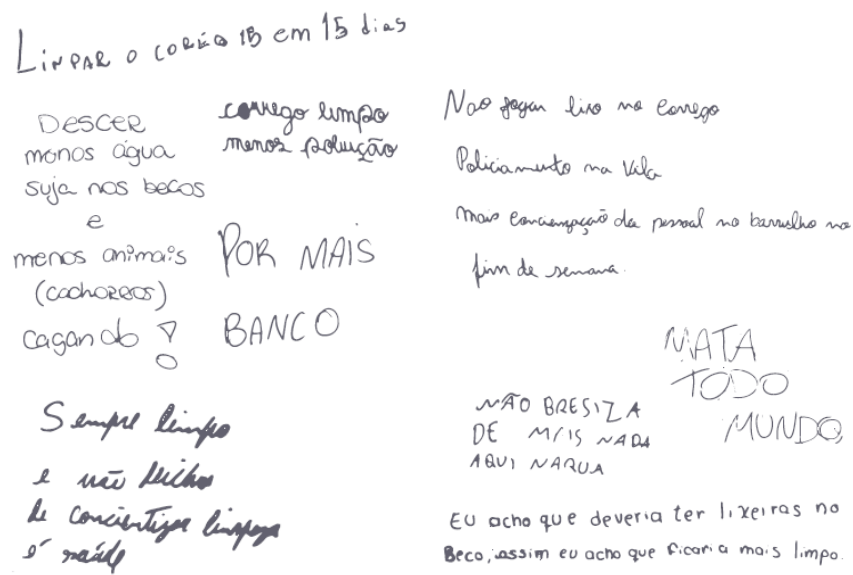 LIMPAR O CORÉGO 15 em 15 dias
DESCER
monos água
suja nos becos
e
menos animais
(cachorros)
cagando!
corrego limpo
menos poluição
POR MAIS
BANCO
Sempre limpo
e não
de concientizar limpeza
é saúde
Nao jogar lixo no corrego
Policiamento na Vila
mais da pessoal no barrulho no
fim de semana.
MATA
TODO
MUNDO,
NÃO BRESIZA
DE M/IS NADA
AQUI NARUA
EU acho que deveria ter lixeiras no
Beco, assim eu acho que ficaria mais limpo.